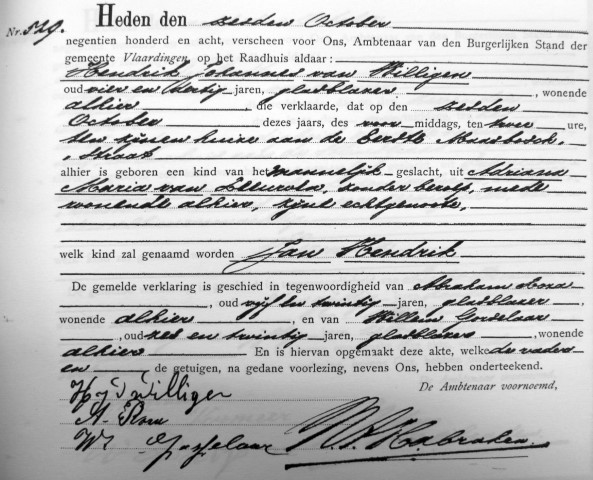 Nr. 529. Heden den zesden October
negentien honderd en acht, verscheen voor Ons, Ambtenaar van den Burgerlijken Stand der
gemeente Vlaardingen, op het Raadhuis aldaar:
Hendrik Johannes van Willigen
oud vier en dertig jaren, glasblazer, wonende
alhier, die verklaarde, dat op den zesden
October dezes jaars, des voor middags, ten twee ure,
ten zijnen huize aan de Eerste Maasbosch
straat
alhier is geboren een kind van het mannelijk geslacht, uit Adriana
Maria van Leeuwen, zonder beroep, mede
wonende alhier, zijne echtgenoote,
welk kind zal genaamd worden Jan Hendrik
De gemelde verklaring is geschied in tegenwoordigheid van Abraham
, oud vijf en twintig jaren, glasblazer,
wonende alhier, en van Willem
, oud zes en twintig jaren, glasblazer, wonende
alhier En is hiervan opgemaakt deze akte, welke de vader
en de getuigen, na gedane voorlezing, nevens Ons, hebben onderteekend.
De Ambtenaar voornoemd,
Willigen
A.
W.